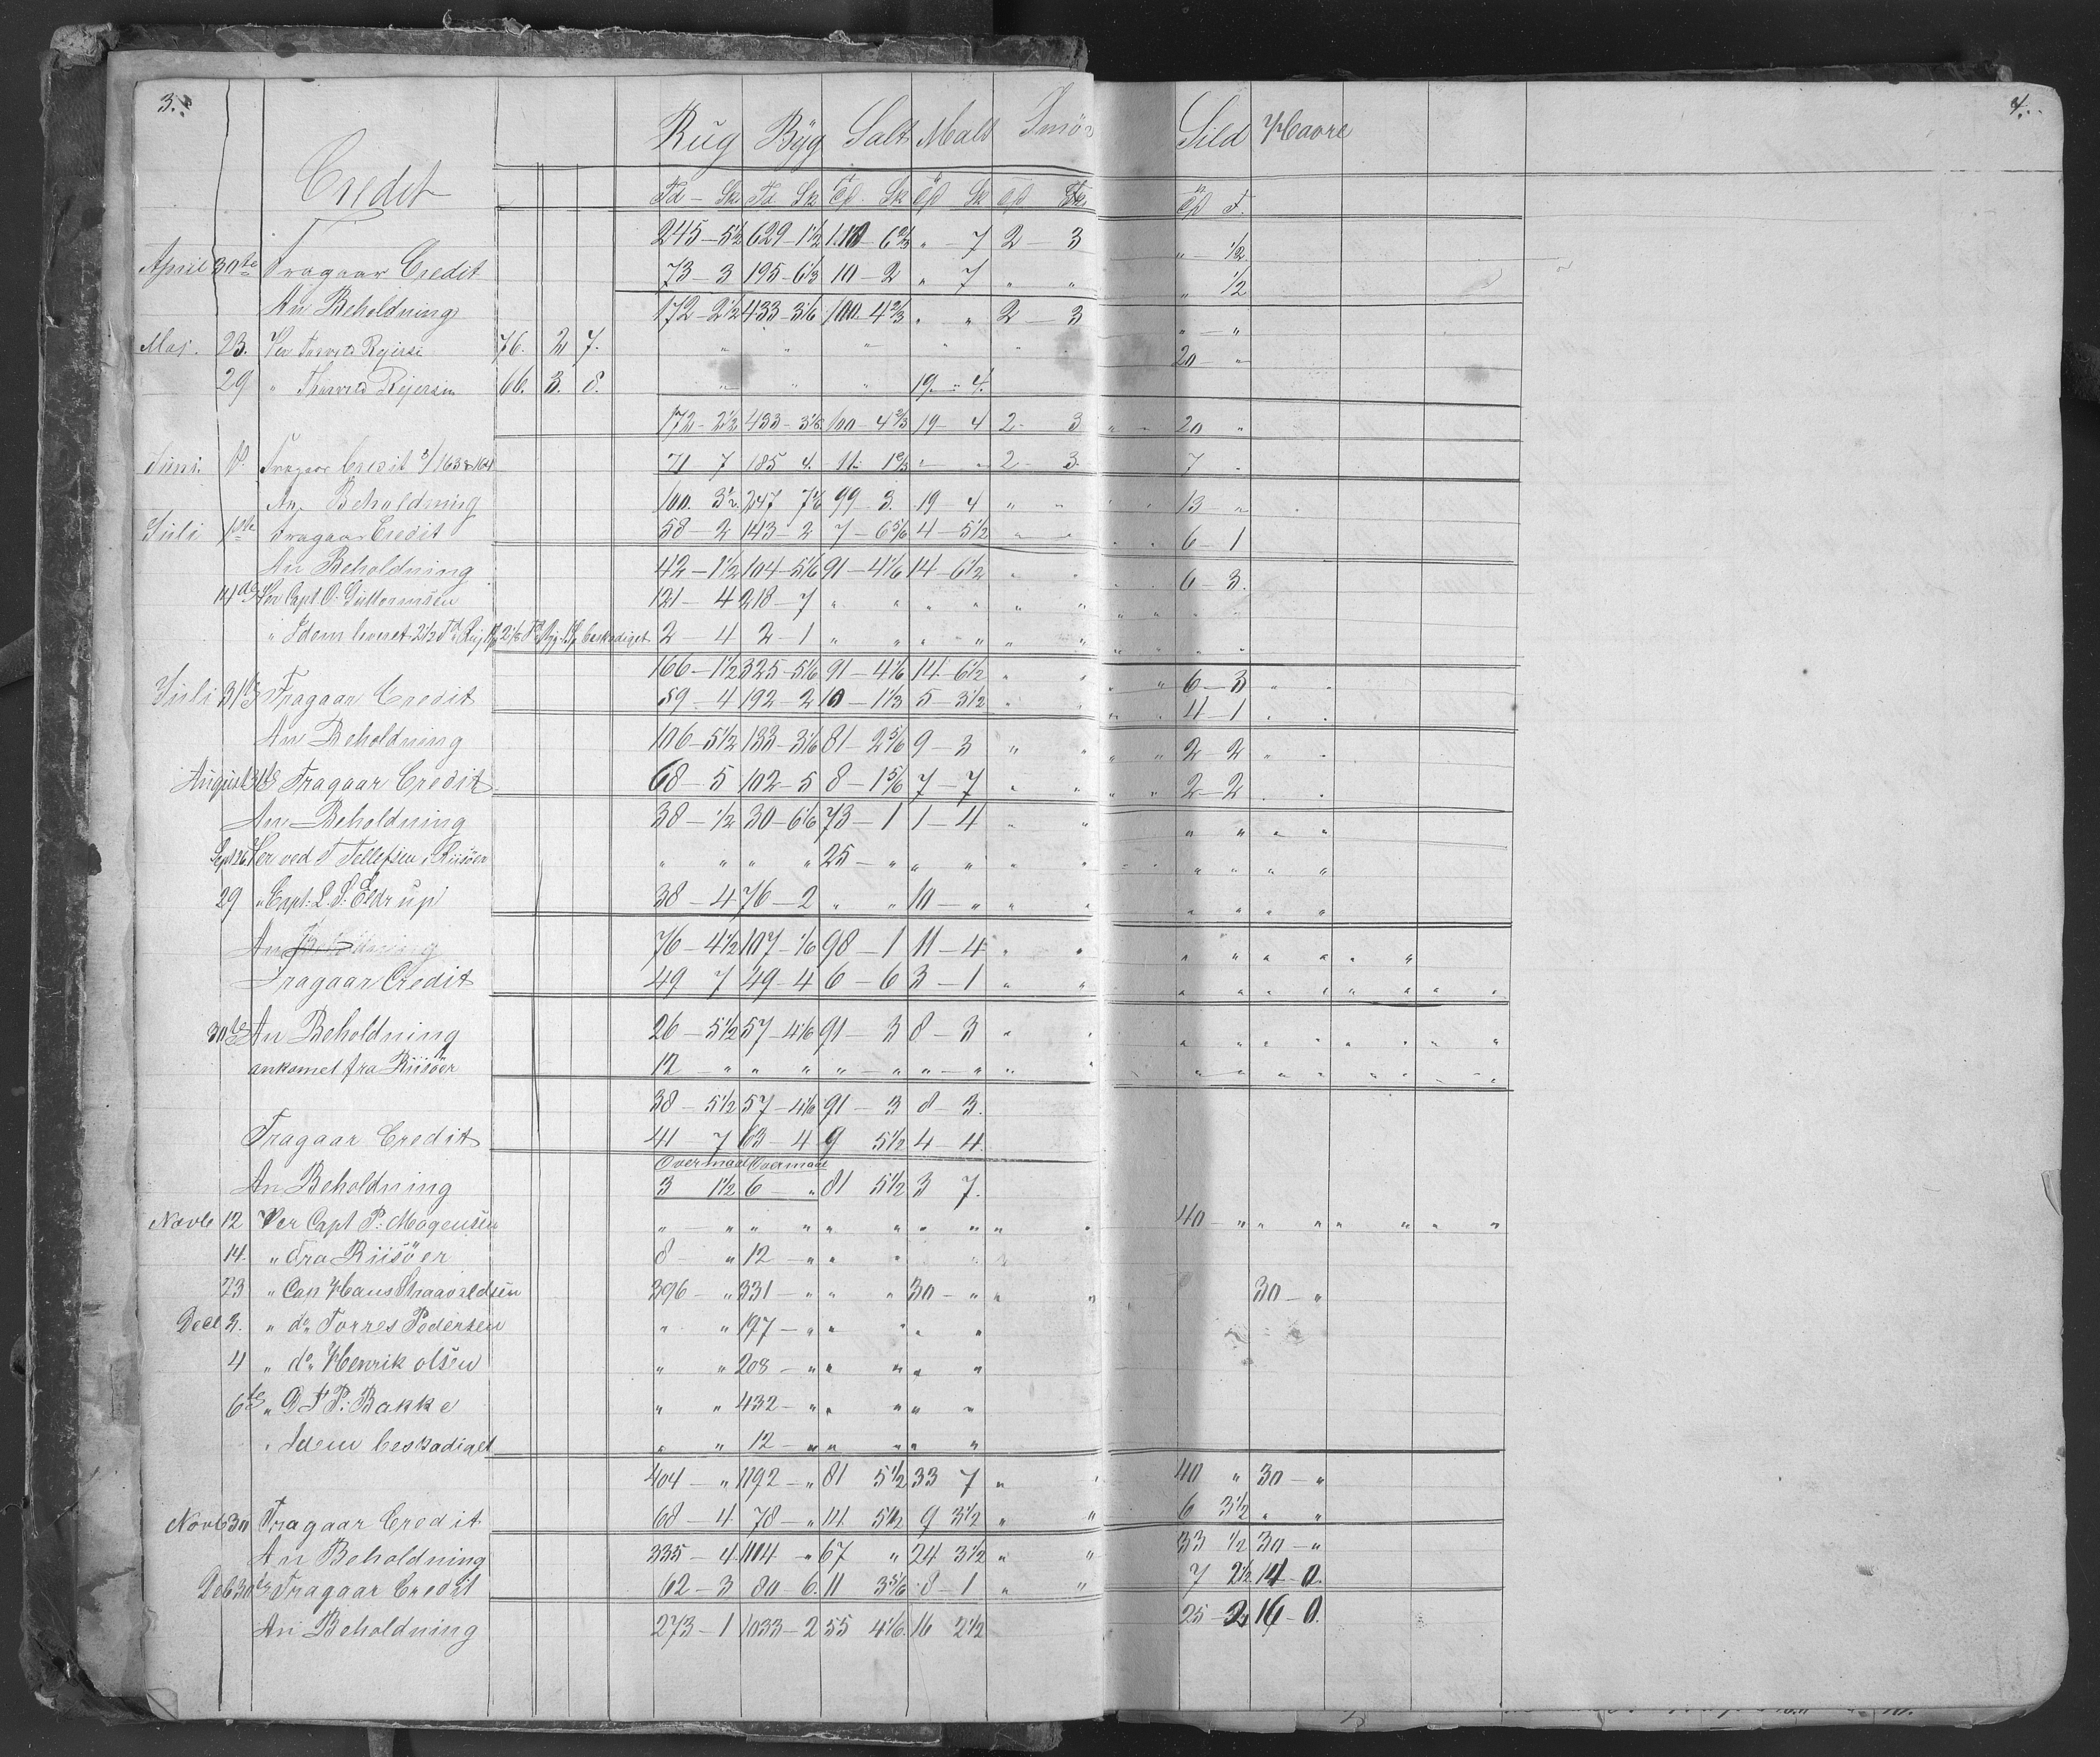 3. 4.
Rug Byg Salt Malt Smør Sild Havre
Credit
Td – Sk Td Sk Td Sk Td Sk
245 – 5½ 629 – 1½ 110 – 6⅔ „ – 7 2 – 3 „ – ½
April 30te Fragaar Credit 73 – 3 195 – 6⅓ 10 – 2 „ 7 „ „ „ ½
An Beholdning 172 – 2½ 433 – 3⅙ 100 – 4⅔ „ „ 2 – 3 „ – „
Maj. 23. Per Torvald Rejersen 76. 2 7. „ „ „ „ „ 20 – „
29 „ Thorvald Rejersen 66. 3. 8. „ „ „ 19 – 4.
172 – 2½ 433 – 3⅙ 100 – 4⅔ 19 – 4 2 – 3 „ – 20 „
Juni. Fragaar Credit 163 & 164 71 – 7 185 4. 11 – 1⅔ „ – „ 2 – 3. 7 „
An Beholdning 100. 3½ 247 7⅙ 99 – 3. 19 4 „ „ 13 – „
Juli 1ste Fragaar Credit 58 – 2 143 – 2 7 – 6⅚ 4 – 5½ „ „ 6 – 1
An Beholdning 42 – 1½ 104 – 5⅙ 91 – 4⅙ 14 – 6½ „ „ 6 – 3.
14de Per Capt O. Guttormsen 121 – 4 218 – 7 „ „ „ „ „ „
„ Idem leveret 2½ Td Rug 2⅛ Td Byg beskadiget 2 – 4 2 – 1 „ „ „ „ „ „
166 – 1½ 325 – 5⅙ 91 – 4⅙ 14 – 6½ „ „ 6 – 3 „ „
Juli 31te Fragaar Credit 59 – 4 192 – 2 10 – 1⅓ 5 – 3½ „ „ 4 – 1 „ „
An Beholdning 106 – 5½ 133 – 3⅙ 81 – 2⅚ 9 – 3 „ „ 2 – 2 „ „
August 31te Fragaar Credit 68 – 5 102 – 5 8 – 1⅚ 7 – 7 „ „ 2 – 2 „ „
An Beholdning 38 – ½ 30 – 6⅙ 73 – 1 1 – 4 „ „ „ „ „ „
Sept 26 Per ved T Tellefsen, Riisöer „ „ „ „ 25 – „ „ „ „ „ „ „ „ „
29 „ Capt: L. S. Eldrup 38 – 4 76 – 2 „ „ 10 – „ „ „ „ „ „ „
An Beholdning 76 – 4½ 107 – ⅙ 98 – 1 11 – 4 „ „ „ „ „ „ „ „
Fragaar Credit 49 7 49 – 4 6 – 6 3 – 1 „ „ „ „ „ „ „ „ „ „
30te An Beholdning 26 – 5½ 57 – 4⅙ 91 – 3 8 – 3 „ „ „ „ „ „ „ „ „ „
ankomet fra Riisöer 12 – „ „ „ „ – „ „ – „ „ „ „ „ „ „ „ „ „ „
38 – 5½ 57 – 4⅙ 91 – 3 8 – 3.
Fragaar Credit 41 – 7 63 – 4 9 5½ 4 – 4.
Overmaal Overmaal
An Beholdning 3 1½ 6 – „ 81 5½ 3 7.
Novb 12 Per Capt P: Mogensen „ – „ „ „ „ „ „ „ „ „ 40 – „ „ „ „ „ „ „
14. „ fra Riisöer 8 – „ 12 – „ „ „ „
23 „ Capt Hans Staavaldsen 396 – „ 331 – „ „ „ 30 – „ „ „ 30 – „
Decb 3. „ do Torres Pedersen „ „ 197 – „ „ „ „ „
4 „ do Henrik olsen „ „ 208 – „ „ „ „ „
6te „ P: Bakke „ „ 432 – „ „ „ „ „
„ Idem beskadiget „ „ 12 – „ „ „ „ „
404 – „ 1192 – „ 81 5½ 33 7 „ „ 40 „ 30 – „
Novb 30 Fragaar Credit 68 – 4 78 – „ 14 5½ 9 3½ „ „ 6 3½ „ „
An Beholdning 335 – 4 1114 – „ 67 „ 24 3½ „ „ 33 ½ 30 – „
Decb 30te Fragaar Credit 62 – 3 80 – 6. 11 3⅚ 8 – 1 „ „ 7 2½ 14 – 0.
An Beholdning 273 – 1 1033 – 2 55 4⅙ 16 2½ 25 – 2 16 – 0.